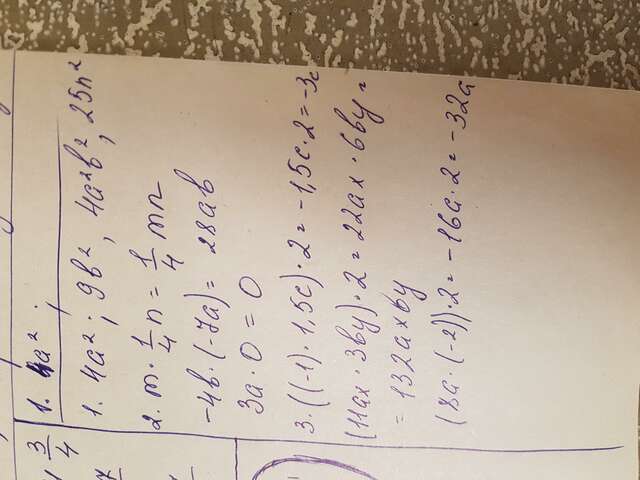 1. 4a²;
1. 4a²; 9b²; 4a²b², 25n²
2. m · 1/4 n = 1/4 mn
-4b · (-7a) = 28ab
3a · 0 = 0
3. ((-1) · 1,5c) · 2 = -1,5c · 2 = -3c
(11ax · 3by) · 2 = 22ax · 6by =
= 132axby
(8a · (-2)) · 2 = -16a · 2 = -32a
3/4